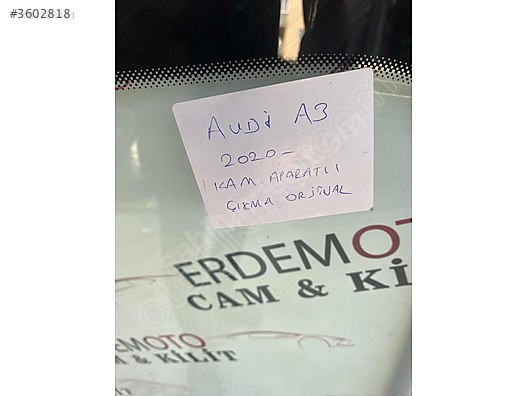 #3602818
AUDİ A3
2020-
KAM. APARATLI
ÇIKMA ORJİNAL
ERDEMOT
CAM & Kİ
DEMOTO
M & KİLİT